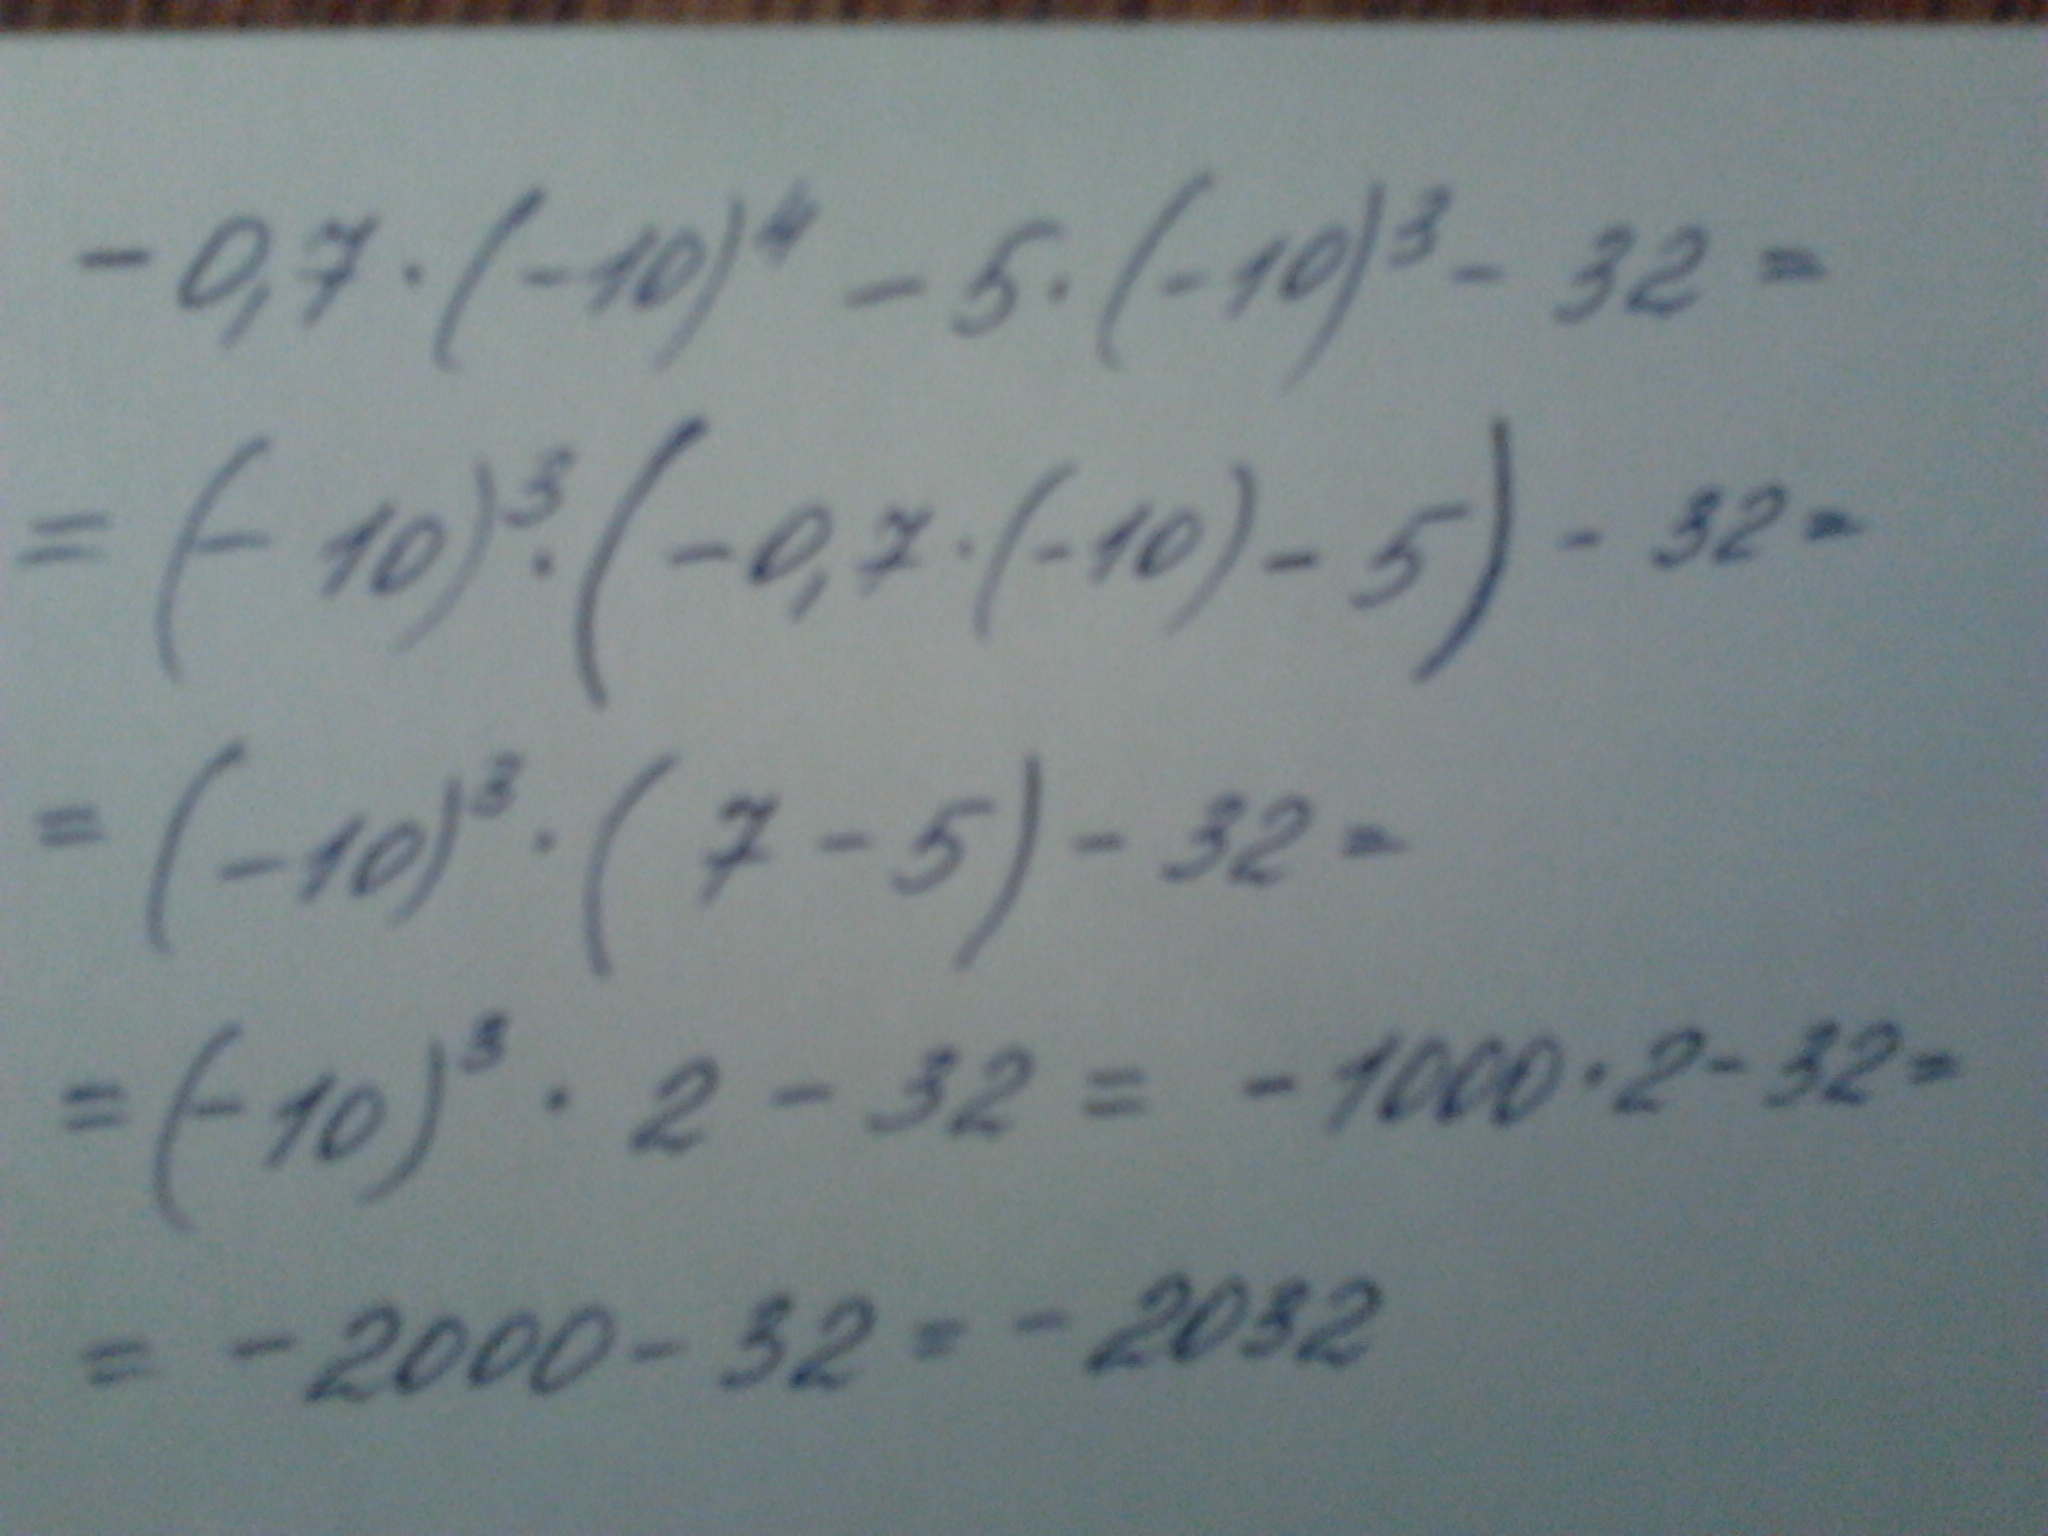 - 0,7 · (-10)⁴ - 5 · (-10)³ - 32 =
= (- 10)³ · (-0,7 · (-10) - 5) - 32 =
= (-10)³ · ( 7 - 5) - 32 =
= (-10)³ · 2 - 32 = - 1000 · 2 - 32 =
= - 2000 - 32 = - 2032